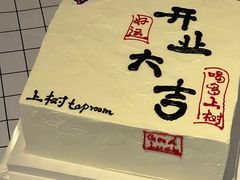 开业
大吉
好运
喝多上树
上树taproom
Good
luck